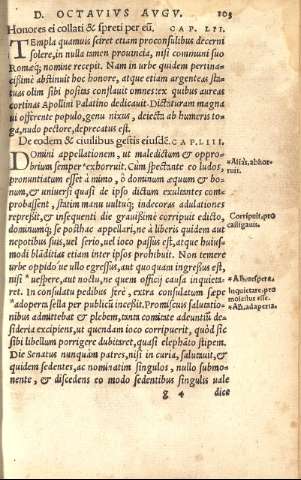 D. OCTAVIVS AVGV. 103
Honores ei collati & spreti per eũ. CAP. LII.
TEmpla quamuis sciret etiam proconsulibus decerni
solere, in nulla tamen prouincia, nisi communi suo
Romæq; nomine recepit. Nam in urbe quidem pertina-
cissime abstinuit hoc honore, atque etiam argenteas sta-
tuas olim sibi positas conflauit omnes: ex quibus aureas
cortinas Apollini Palatino dedicauit. Dictaturam magna
ui offerente populo, genu nixus, deiecta ab humeris to-
ga, nudo pectore, deprecatus est.
De eodem & ciuilibus gestis eiusdẽ. CAP. LIII.
DOmini appellationem, ut maledictum & oppro-
brium semper *exhorruit. Cum spectante eo ludos,
pronuntiatum esset in mimo, ô dominum æquum & bo-
num, & uniuersi quasi de ipso dictum exultantes com-
probassent, statim manu uultuq; indecoras adulationes
repressit, & insequenti die grauissime corripuit edicto,
dominumq; se posthac appellari, ne à liberis quidem aut
nepotibus suis, uel serio, uel ioco passus est, atque huius-
modi blãditias etiam inter ipsos prohibuit. Non temere
urbe oppido ue ullo egressus, aut quoquam ingressus est,
nisi *uespere, aut noctu, ne quem officij causa inquieta-
ret. In consulatu pedibus ferè, extra consulatum sæpe
*adoperta sella per publicũ incessit. Promiscuis salutatio-
nibus admittebat & plebem, tanta comitate adeuntiũ de-
sideria excipiens, ut quendam ioco corripuerit, quòd sic
sibi libellum porrigere dubitaret, quasi elephãto stipem.
Die Senatus nunquàm patres, nisi in curia, salutauit, &
quidem sedentes, ac nominatim singulos, nullo submo-
nente, & discedens eo modo sedentibus singulis uale
g 4 dice
*Aliàs, abhor-
ruit.
Corripuit, pro
castigauit.
*Al. uespera.
Inquietare, pro
molestus esse.
*Al. adaperta.